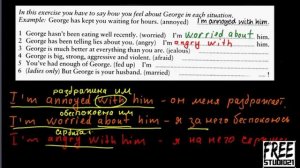 In this exercise you have to say how you feel about George in each situation.
Example: George has kept you waiting for hours. (annoyed) I'm annoyed with him.
1 George hasn't been eating well recently. (worried) I'm worried about him.
2 George has been telling lies about you. (angry) I'm angry with him.
3 George is much better at everything than you are. (jealous)
4 George is big, strong, aggressive and violent. (afraid)
5 You've had enough of George. (fed up) I'm
6 (ladies only) But George is your husband. (married)
раздражена им
I'm annoyed with him - он меня раздражает
обеспокоена им
I'm worried about him - я за него беспокоюсь
I'm angry with him - я на него
FREE
STUDIO21